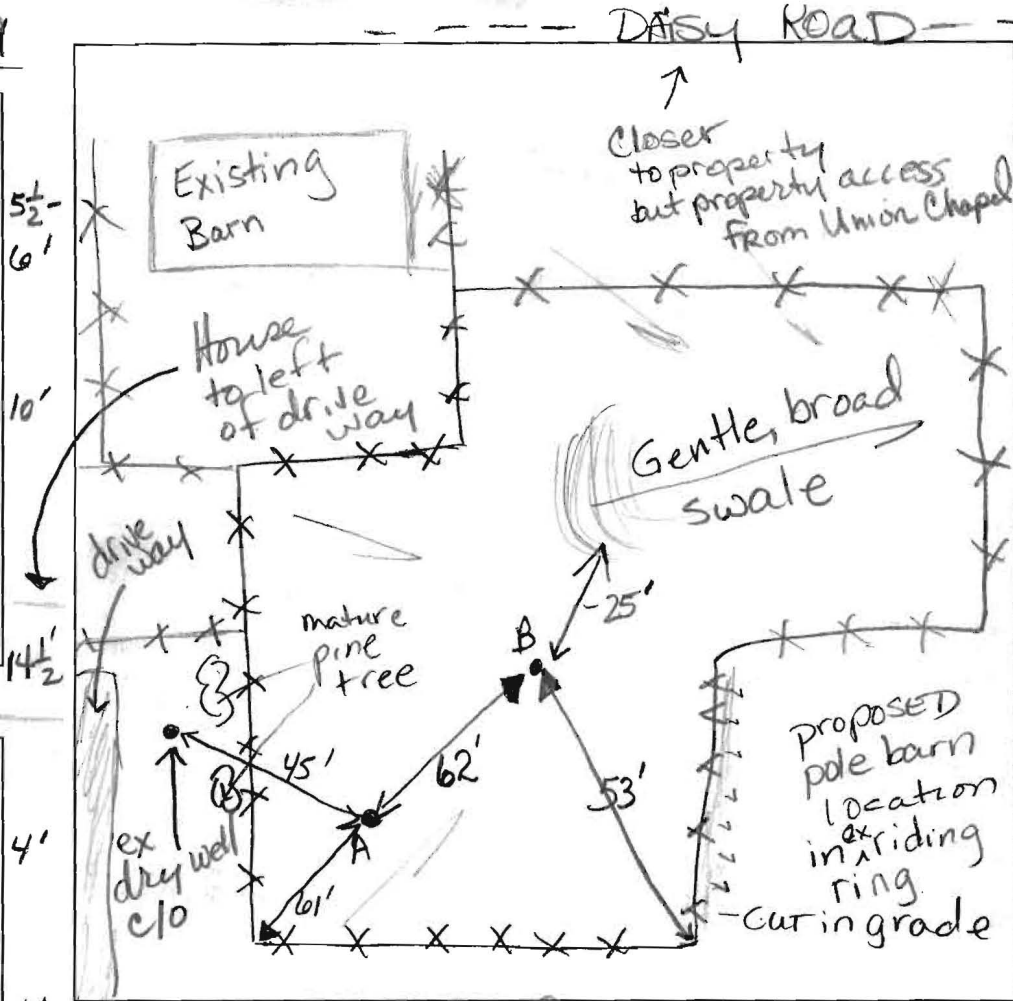 DAISY ROAD
Closer
to property
but property access
from Union Chapel
Existing
Barn
5½-
6'
10'
14½
4'
House
to left
of drive
way
Gentle, broad
swale
drive
way
mature
pine
tree
B
25'
45'
62'
53'
A
61'
ex
dry well
c/o
proposed
pole barn
location
in ex riding
ring
-cut in grade